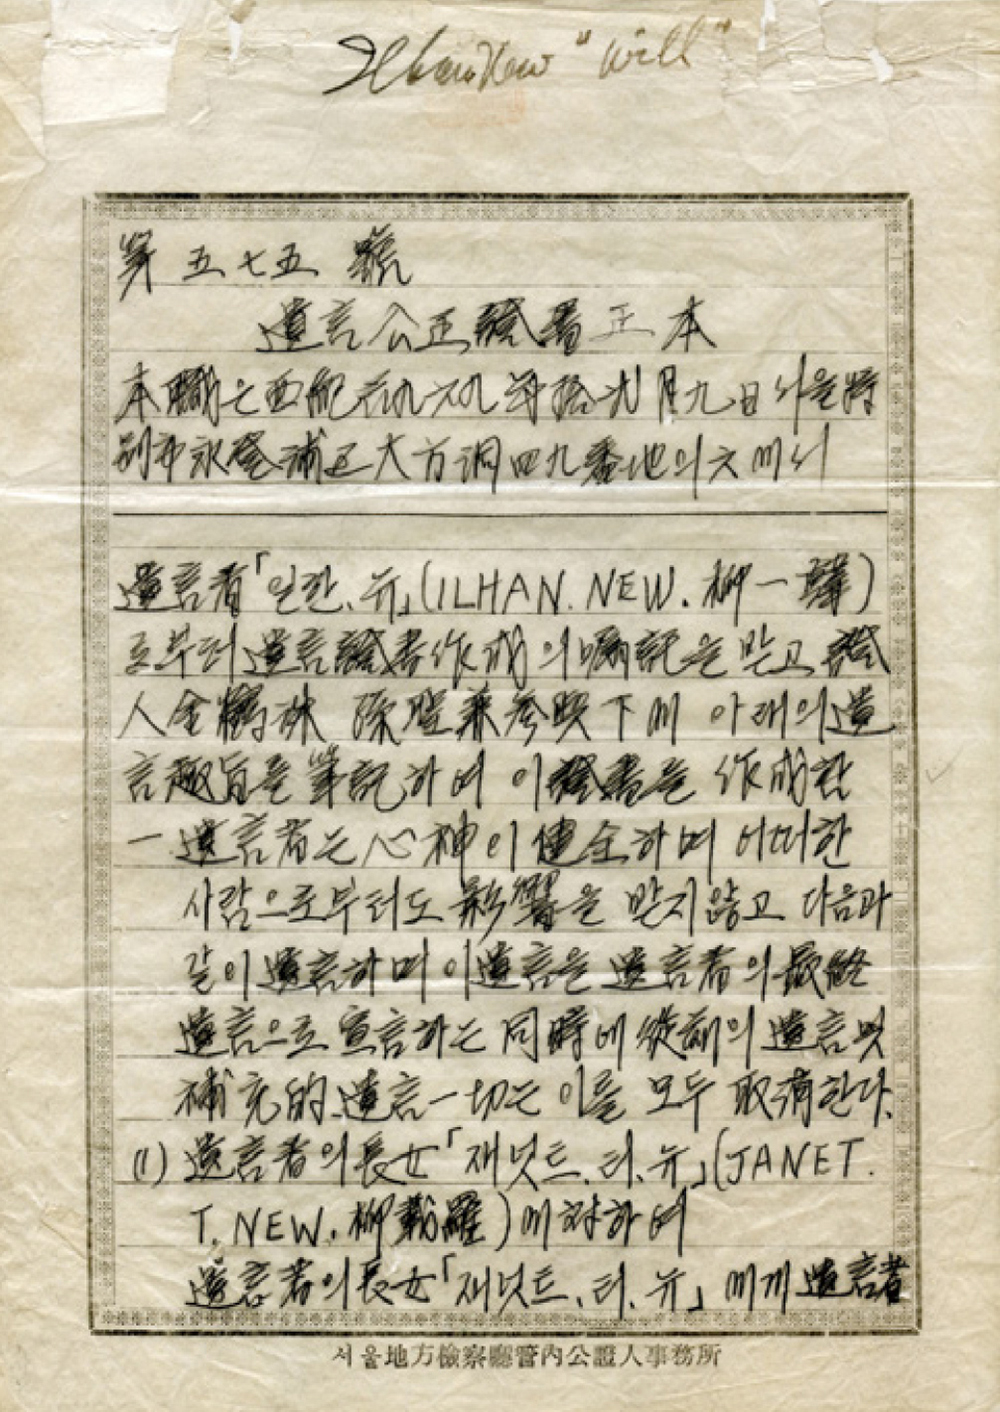 Ilhan New "Will"
第五七五號
遺言公正證書正本
本職는 西紀 壱九六九年 拾 月 九日 서울特
別市 永登浦區 大方洞 四九番地의 六에서
遺言者「일한.뉴」(ILHAN. NEW. 柳一韓)
로부터 遺言證書作成의 囑託을 받고 證
人 金鶴洙 孫 兼 參與下에 아래의 遺
言趣旨를 筆記하여 이 證書를 作成함
一 遺言者는 心神이 健全하며 어떠한
사람으로부터도 影響을 받지않고 다음과
같이 遺言하며 이 遺言을 遺言者의 最終
遺言으로 宣言하는 同時에 從前의 遺言및
補充的 遺言一切는 이를 모두 取消한다.
(1) 遺言者의 長女「재넛트.티.뉴」(JANET.
T. NEW. 柳載羅)에 對하여
遺言者의 長女「재넛트.티.뉴」에게 遺言者
서울地方檢察廳管內公證人事務所